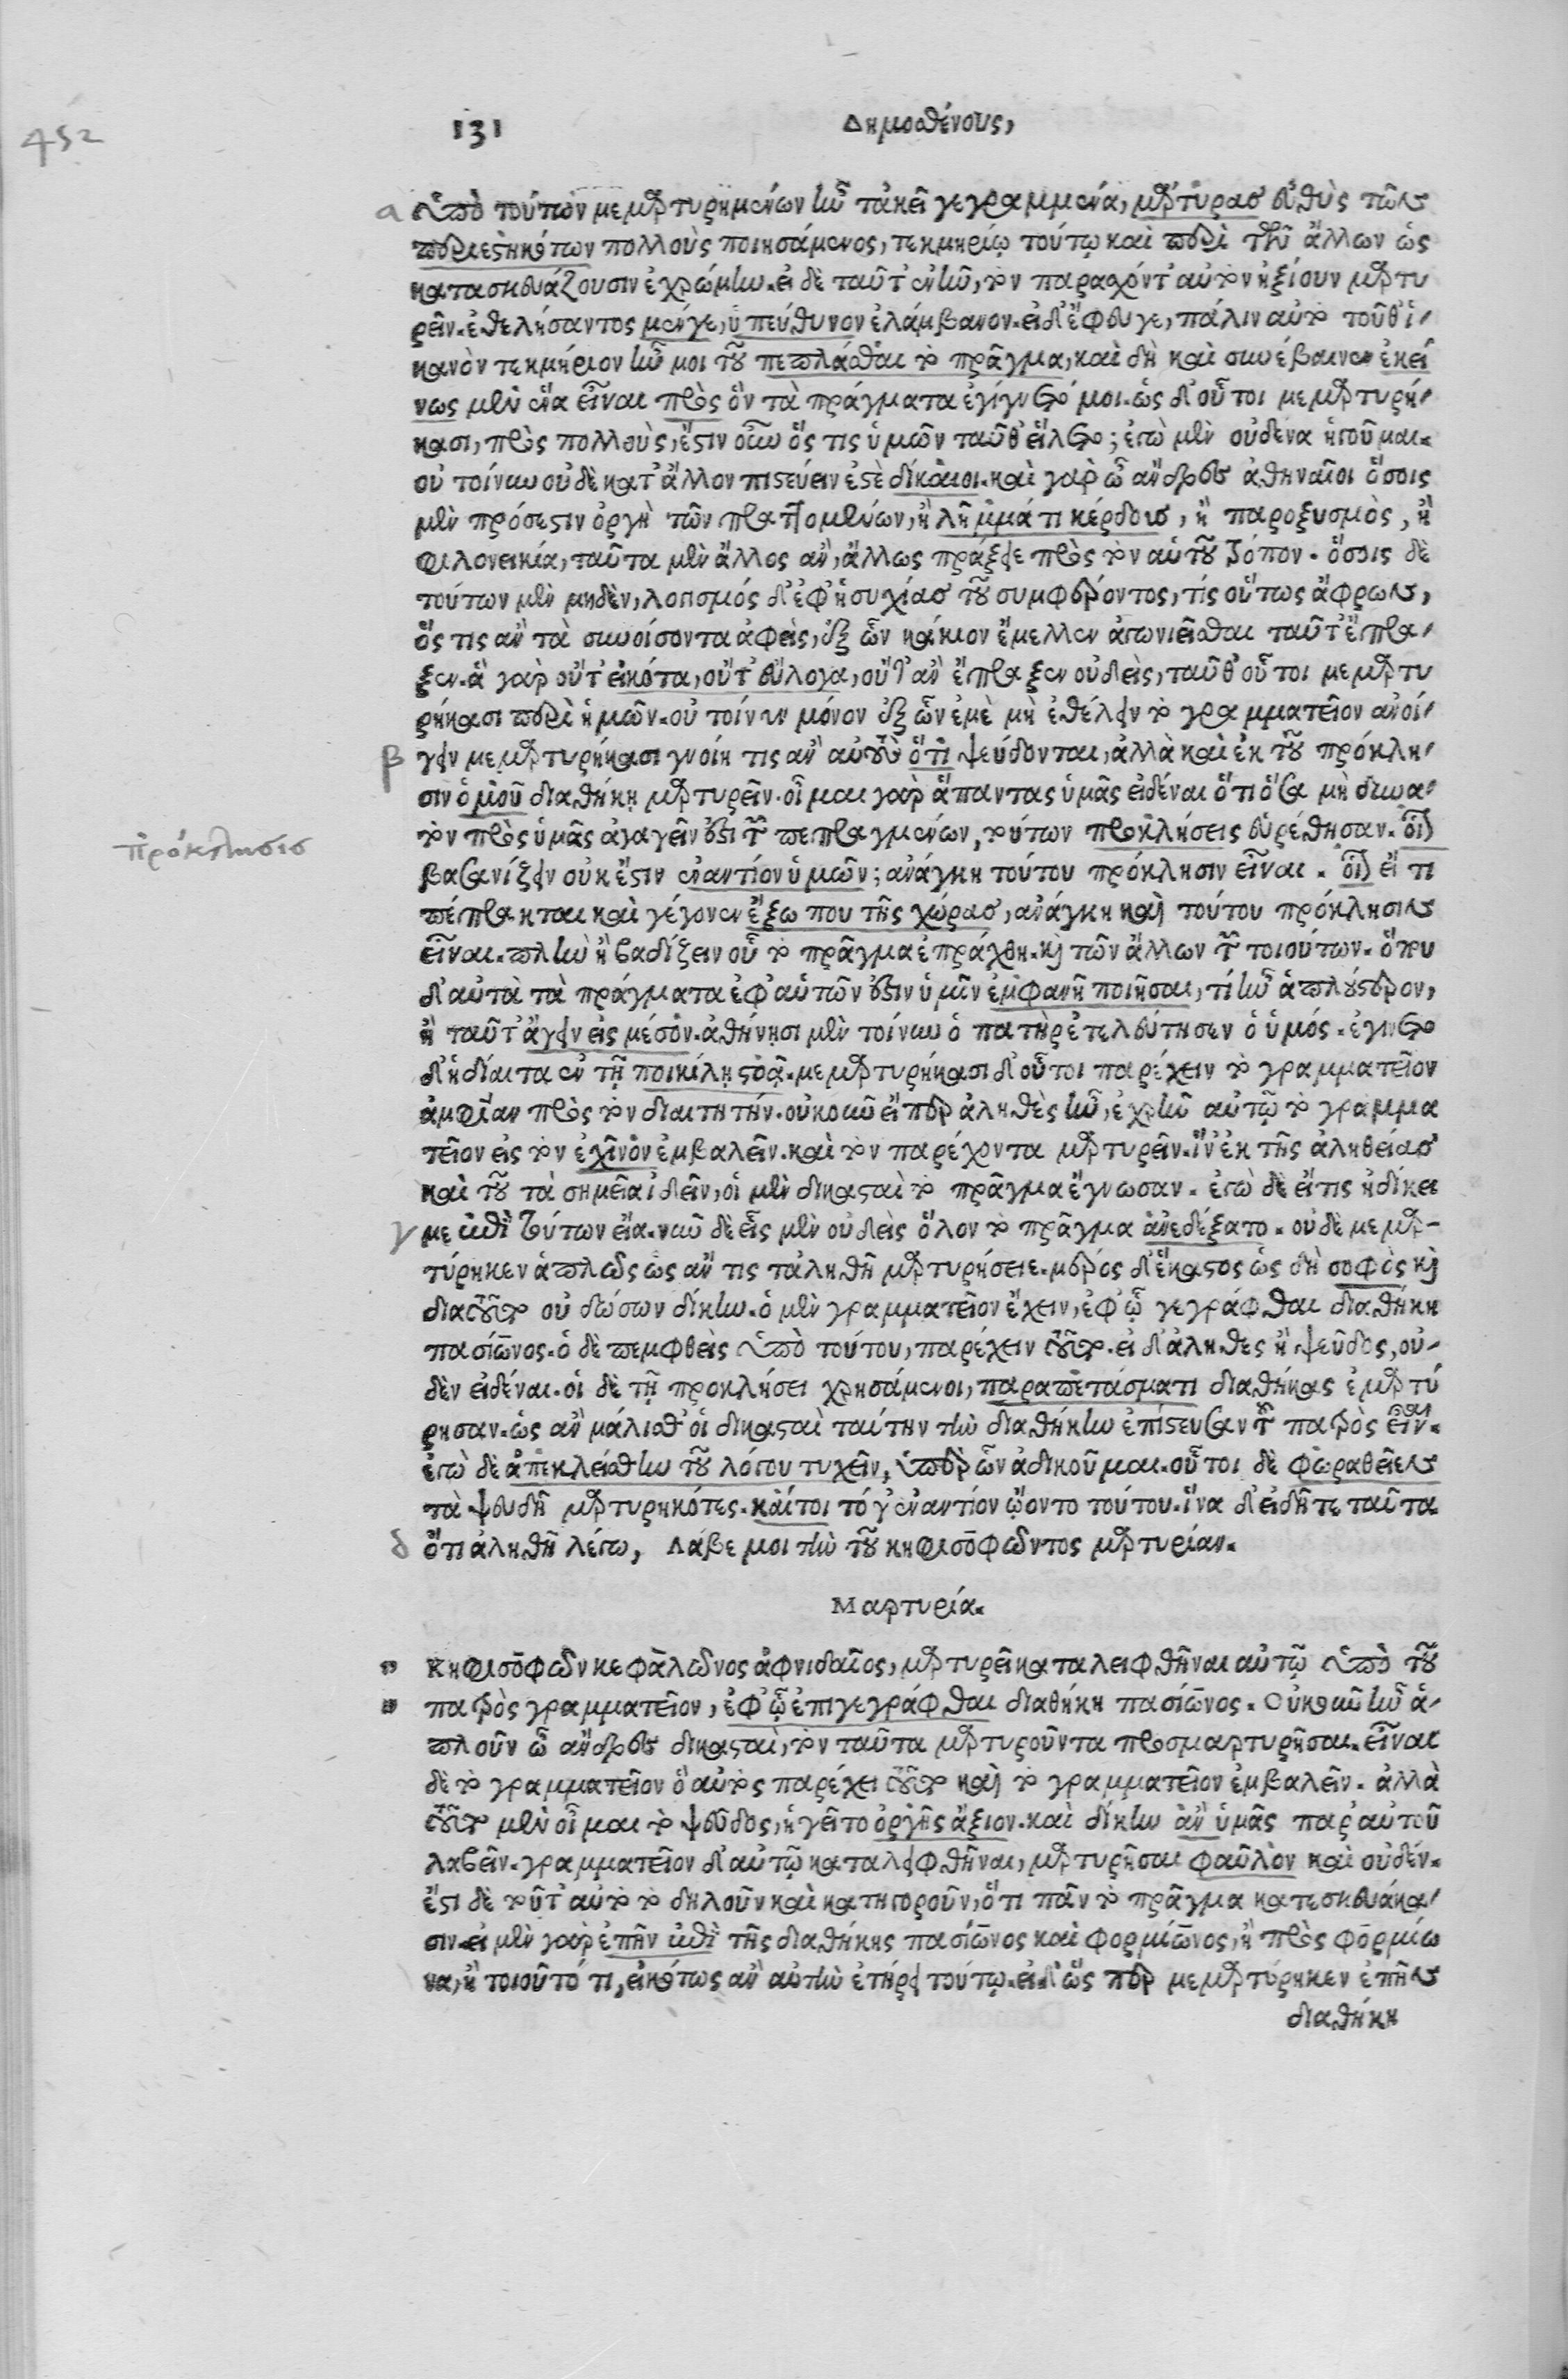 452
131 Δημοσθένους,
α ὑπὸ τούτων μεμαρτυρημένων ἦν τἀκεῖ γεγραμμένα, μάρτυρας εὐθὺς τῶν
περιεστηκότων πολλοὺς ποιησάμενος, τεκμηρίῳ τούτῳ καὶ περὶ τῶν ἄλλων ὡς
κατασκευάζουσιν ἐχρώμην. εἰ δὲ ταῦτ' ἐνῆν, τὸν παρασχόντ' αὐτὸν ἠξίουν μαρτυ
ρεῖν. ἐθελήσαντος μέν γε, ὑπεύθυνον ἐλάμβανον. εἰ δ' ἔφευγε, πάλιν αὐτὸ τοῦθ' ἱ-
κανὸν τεκμήριον ἦν μοι τοῦ πεπλάσθαι τὸ πρᾶγμα, καὶ δὴ καὶ συνέβαινεν ἐκεί
νως μὲν ἕνα εἶναι πρὸς ὃν τὰ πράγματα ἐγίγνετό μοι. ὡς δ' οὗτοι μεμαρτυρή-
κασι, πρὸς πολλοὺς, ἔστιν οὖν ὅς τις ὑμῶν ταῦθ' εἵλετο; ἐγὼ μὲν οὐδένα ἡγοῦμαι.
οὐ τοίνυν οὐδὲ κατ' ἄλλον πιστεύειν ἐστὲ δίκαιοι. καὶ γὰρ ὦ ἄνδρες ἀθηναῖοι ὅσοις
μὲν πρόσεστιν ὀργὴ τῶν πραττομένων, ἢ λῆμμά τι κέρδους, ἢ παροξυσμὸς, ἢ
φιλονεικία, ταῦτα μὲν ἄλλος ἂν, ἄλλως πράξειε πρὸς τὸν αὑτοῦ τρόπον. ὅσοις δὲ
τούτων μὲν μηδὲν, λογισμός δ' ἐφ' ἡσυχίας τοῦ συμφέροντος, τίς οὕτως ἄφρων,
ὅς τις ἂν τὰ συνοίσοντα ἀφεὶς, ἐξ ὧν κάκιον ἔμελλεν ἀγωνιεῖσθαι ταῦτ' ἔπρα-
ξεν. ἃ γὰρ οὔτ' εἰκότα, οὔτ' εὔλογα, οὔτ' ἂν ἔπραξεν οὐδεὶς, ταῦθ' οὗτοι μεμαρτυ
ρήκασι περὶ ἡμῶν. οὐ τοίνυν μόνον ἐξ ὧν ἐμὲ μὴ ἐθέλειν τὸ γραμματεῖον ἀνοί-
β γειν μεμαρτυρήκασι γνοίη τις ἂν αὐτοὺς ὅτι ψεύδονται, ἀλλὰ καὶ ἐκ τοῦ πρόκλη-
σιν ὁμοῦ διαθήκῃ μαρτυρεῖν. οἶμαι γὰρ ἅπαντας ὑμᾶς εἰδέναι ὅτι ὅσα μὴ δυνα-
τὸν πρὸς ὑμᾶς ἀγαγεῖν ἐστι τῶν πεπραγμένων, τούτων προκλήσεις εὑρέθησαν. οἷον
πρόκλησις
βασανίζειν οὐκ ἔστιν ἐναντίον ὑμῶν; ἀνάγκη τούτου πρόκλησιν εἶναι. οἷον εἴ τι
πέπρακται καὶ γέγονεν ἔξω που τῆς χώρας, ἀνάγκη καὶ τούτου πρόκλησιν
εἶναι. πλὴν ἢ βαδίζειν οὗ τὸ πρᾶγμα ἐπράχθη. καὶ τῶν ἄλλων τῶν τοιούτων. ὅπου
δ' αὐτὰ τὰ πράγματα ἐφ' αὑτῶν ἐστιν ὑμῖν ἐμφανῆ ποιῆσαι, τί ἦν ἁπλούστερον,
ἢ ταῦτ' ἄγειν εἰς μέσον. ἀθήνησι μὲν τοίνυν ὁ πατὴρ ἐτελεύτησεν ὁ ὑμός. ἐγίνετο
δ' ἡ δίαιτα ἐν τῇ ποικίλῃ στοᾷ. μεμαρτυρήκασι δ' οὗτοι παρέχειν τὸ γραμματεῖον
ἀμφίαν πρὸς τὸν διαιτητήν. οὐκοῦν εἴπερ ἀληθὲς ἦν, ἐχρῆν αὐτῷ τὸ γραμμα
τεῖον εἰς τὸν ἐχῖνον ἐμβαλεῖν. καὶ τὸν παρέχοντα μαρτυρεῖν. ἵν' ἐκ τῆς ἀληθείας
καὶ τοῦ τὰ σημεῖα ἰδεῖν, οἱ μὲν δικασταὶ τὸ πρᾶγμα ἔγνωσαν. ἐγὼ δὲ εἴ τις ἠδίκει
γ με ἐπὶ τούτων εἶα. νῦν δὲ εἷς μὲν οὐδεὶς ὅλον τὸ πρᾶγμα ἀνεδέξατο. οὐδὲ μεμαρ-
τύρηκεν ἁπλῶς ὡς ἄν τις τἀληθῆ μαρτυρήσειε. μέρος δ' ἕκαστος ὡς δὴ σοφὸς καὶ
διὰ τοῦτο οὐ δώσων δίκην. ὁ μὲν γραμματεῖον ἔχειν, ἐφ' ᾧ γεγράφθαι διαθήκη
πασίωνος. ὁ δὲ πεμφθεὶς ὑπὸ τούτου, παρέχειν τοῦτο. εἰ δ' ἀληθὲς ἢ ψεῦδος, οὐ-
δὲν εἰδέναι. οἱ δὲ τῇ προκλήσει χρησάμενοι, παραπετάσματι διαθήκας ἐμαρτύ
ρησαν. ὡς ἂν μάλισθ' οἱ δικασταὶ ταύτην τὴν διαθήκην ἐπίστευσαν τοῦ πατρὸς εἶναι.
ἐγὼ δὲ ἀπεκλείσθην τοῦ λόγου τυχεῖν, ὑπὲρ ὧν ἀδικοῦμαι. οὗτοι δὲ φωραθεῖεν
τὰ ψευδῆ μαρτυρηκότες. καίτοι τό γ' ἐναντίον ᾤοντο τούτου. ἵνα δ' εἰδῆτε ταῦτα
δ ὅτι ἀληθῆ λέγω, Λάβε μοι τὴν τοῦ κηφισοφῶντος μαρτυρίαν.
Μαρτυρία.
" Κηφισοφῶν κεφάλωνος ἀφνιδαῖος, μαρτυρεῖ καταλειφθῆναι αὐτῷ ὑπὸ τοῦ
" πατρὸς γραμματεῖον, ἐφ' ᾧ ἐπιγεγράφθαι διαθήκη πασίωνος. Οὐκοῦν ἦν ἁ-
πλοῦν ὦ ἄνδρες δικασταὶ, τὸν ταῦτα μαρτυροῦντα προσμαρτυρῆσαι. εἶναι
δὲ τὸ γραμματεῖον ὃ αὐτὸς παρέχει τοῦτο καὶ τὸ γραμματεῖον ἐμβαλεῖν. ἀλλὰ
τοῦτο μὲν οἶμαι τὸ ψεῦδος, ἡγεῖτο ὀργῆς ἄξιον. καὶ δίκην ἂν ὑμᾶς παρ' αὐτοῦ
λαβεῖν. γραμματεῖον δ' αὐτῷ καταλειφθῆναι, μαρτυρῆσαι φαῦλον καὶ οὐδέν.
ἔστι δὲ τοῦτ' αὐτὸ τὸ δηλοῦν καὶ κατηγοροῦν, ὅτι πᾶν τὸ πρᾶγμα κατεσκευάκα-
σιν. εἰ μὲν γὰρ ἐπῆν ἐπὶ τῆς διαθήκης πασίωνος καὶ φορμίωνος, ἢ πρὸς φορμίω
να, ἢ τοιοῦτό τι, εἰκότως ἂν αὐτὴν ἐτήρει τούτῳ. εἰ δ' ὥς περ μεμαρτύρηκεν ἐπῆν
διαθήκη